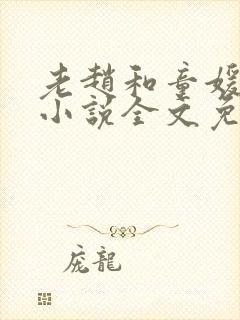 老趙和童媛
小說全文免
庞龍